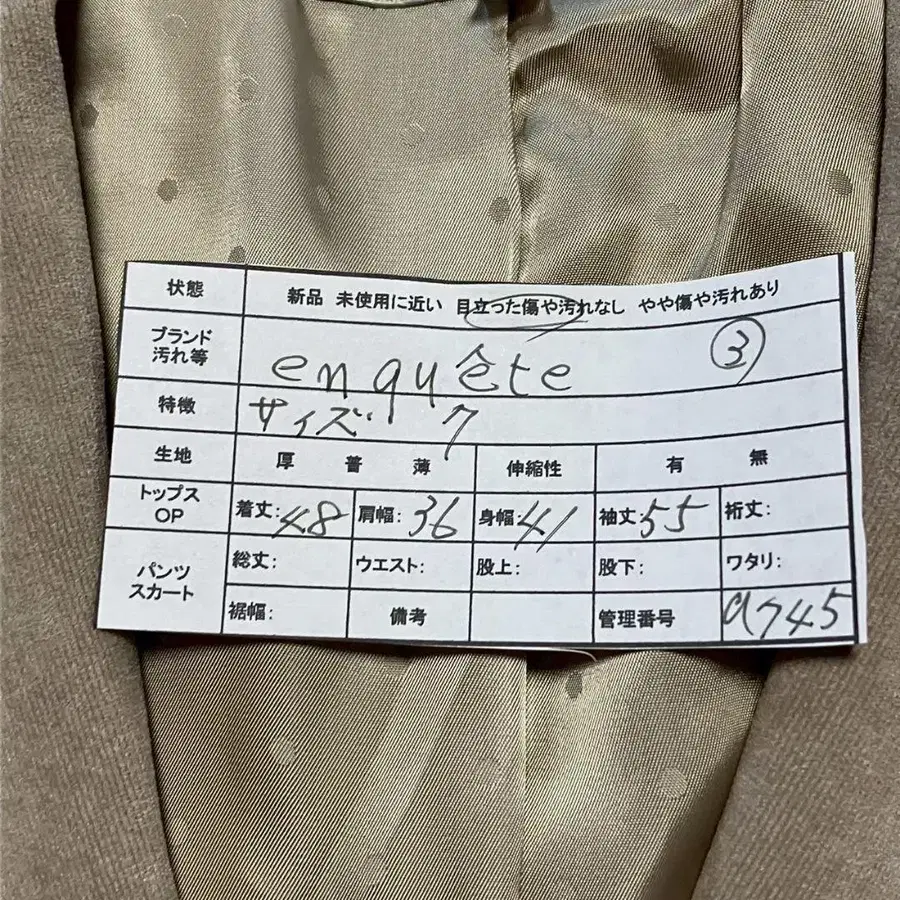 状態 新品 未使用に近い 目立った傷や汚れなし やや傷や汚れあり
ブランド
汚れ等 enquête ③
特徴 サイズ 7
生地 厚 普 薄 伸縮性 有 無
トップス
OP 着丈:48 肩幅:36 身幅:41 袖丈:55 裄丈:
パンツ
スカート 総丈: ウエスト: 股上: 股下: ワタリ:
裾幅: 備考 管理番号 a745